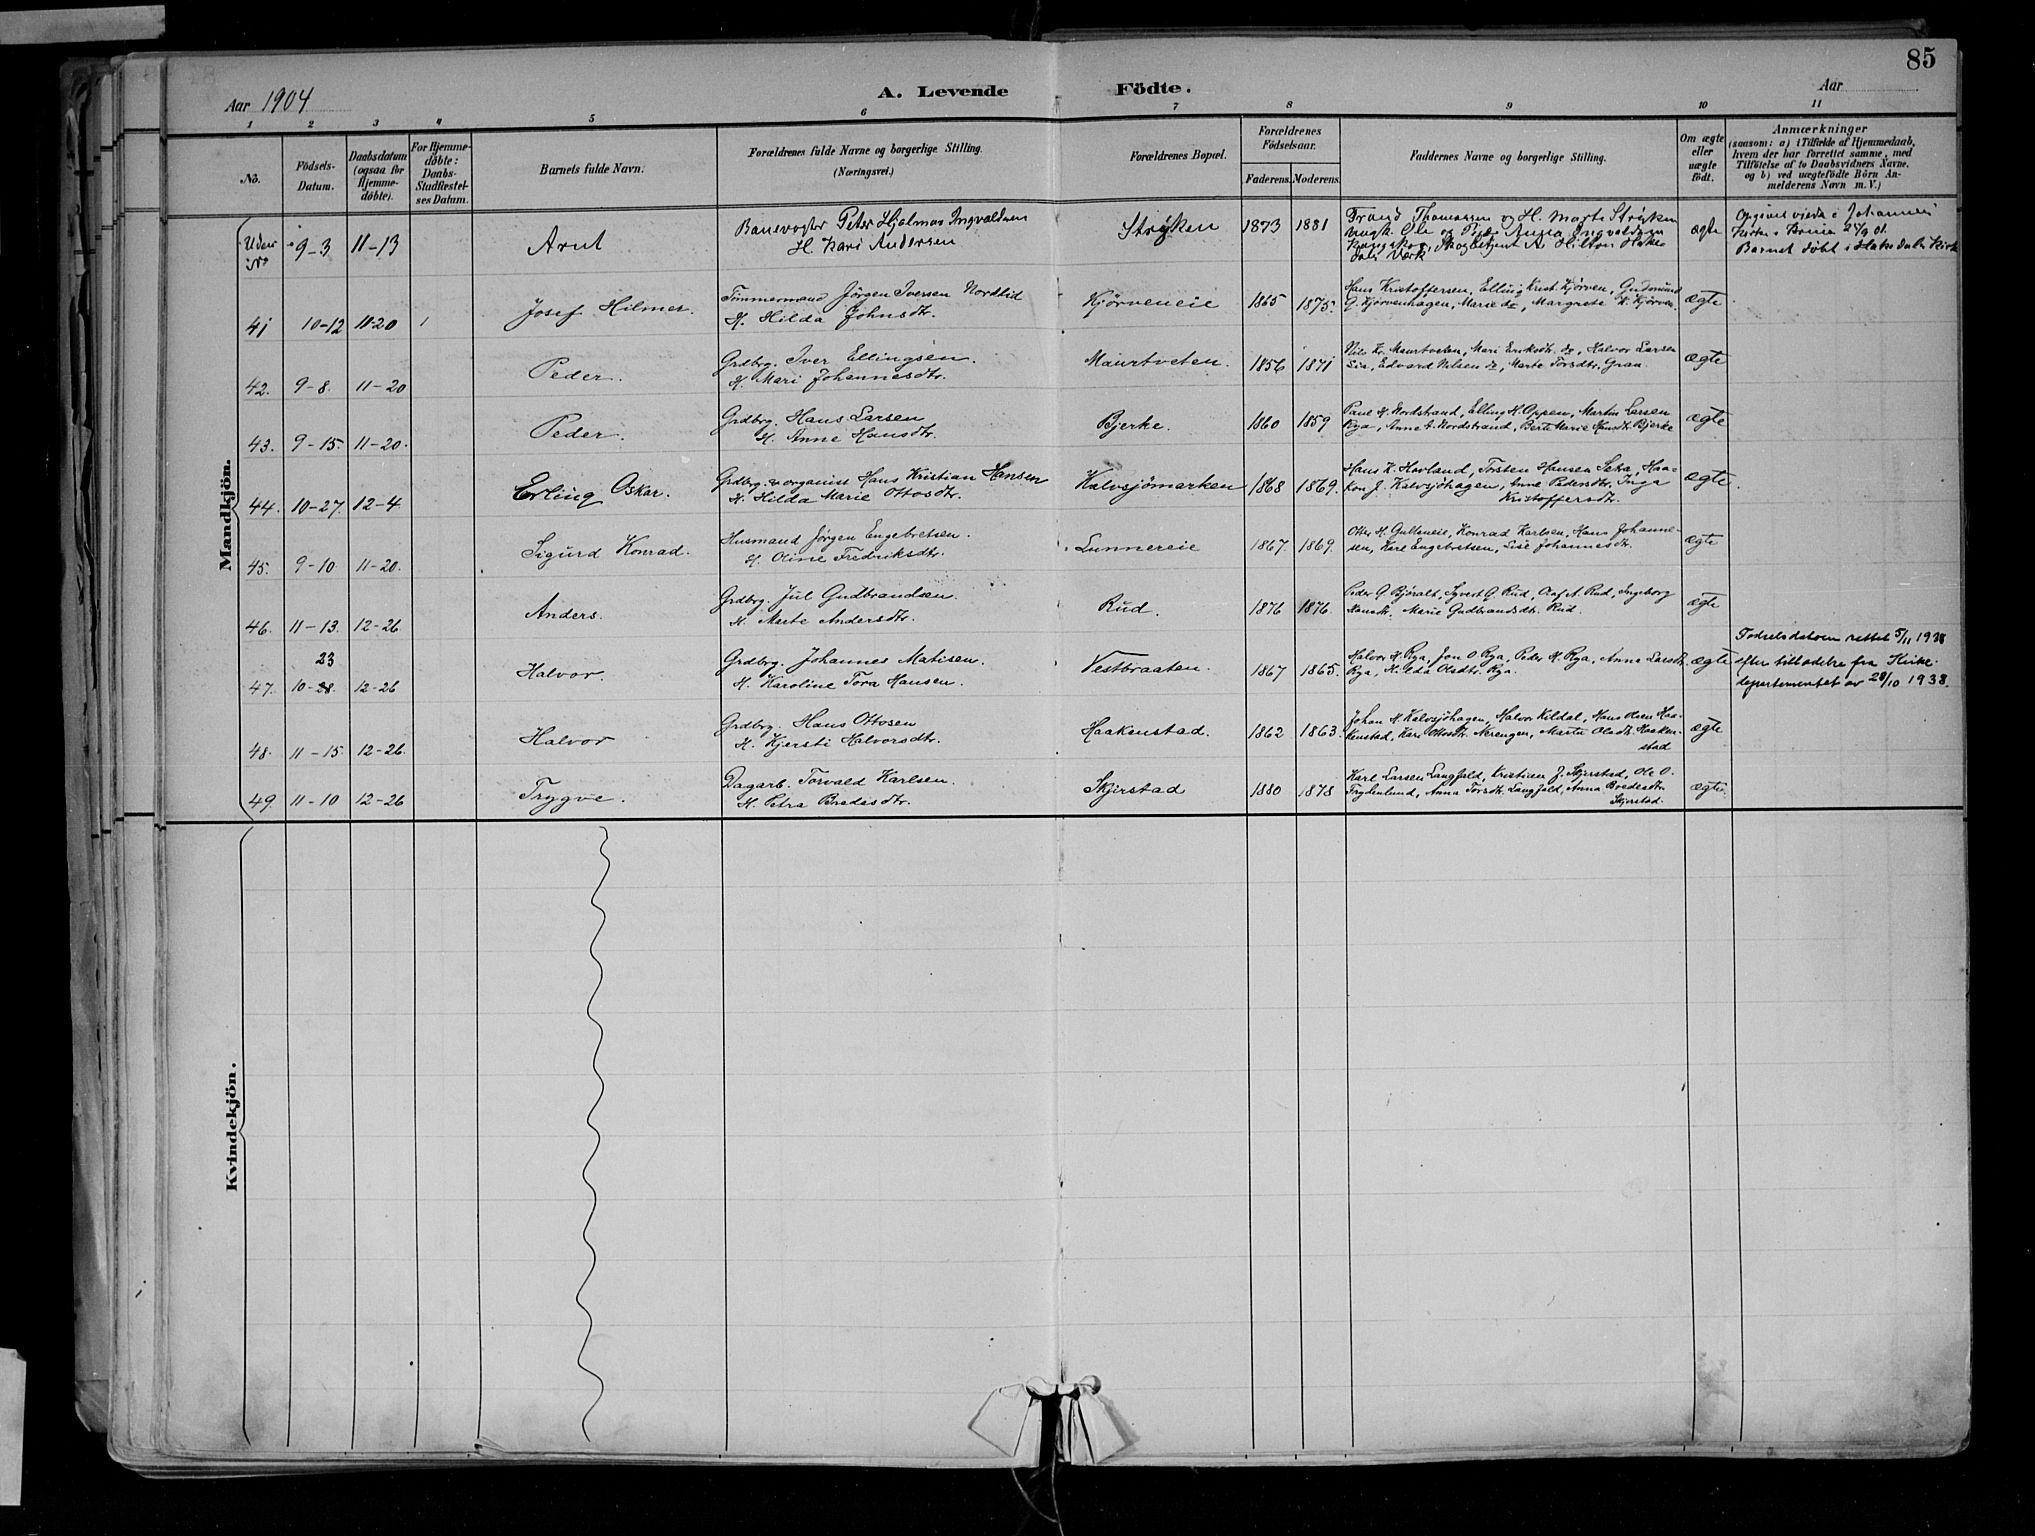 85
Aar 1904
A. Levende Födte.
Aar
1 2 3 4 5 6 7 8 9 10 11
No.
Födsels-Datum.
Daabsdatum (ogsaa for Hjemme-döbte).
For Hjemme-döbte: Daabs-Stadfæstel-ses Datum.
Barnets fulde Navn.
Forældrenes fulde Navne og borgerlige Stilling. (Næringsvei.)
Forældrenes Bopæl.
Forældrenes Födselsaar.
Faderens. Moderens.
Faddernes Navne og borgerlige Stilling.
Om ægte eller uægte födt.
Anmærkninger
(saasom: a) i Tilfælde af Hjemmedaab,
hvem der har forrettet samme, med
Tilföielse af to Daabsvidners Navne.
og b) ved uægtefödte Börn An-
melderens Navn m. V.)
Mandkjön.
Uden No 9-3 11-13 Arnt
Banevogter Peter Hjalmar Ingvaldsen
H. Kari Andersen
Stryken 1873 1881
Trond Thomassen og H. Marte Stryken
Ungk. Ole og Pige Anna Ingvaldsen
ægte
Opgives viede i Johannes
Kirke i
Barnet döbt i Hakedals Kirke
41 10-12 11-20 1 Josef Hilmer.
Tømmermand Jörgen Iversen Nordtid
H. Hilda Johnsdtr.
Kjörveneie 1865 1875.
Hans Kristoffersen, Elling Krist. Kjörven, Gudmund
G. Kjörvenhagen, Marie do, Margrete Kjörven.
ægte
42. 9-8. 11-20 Peder.
Grdbrg. Iver Ellingsen.
H. Mari Johannesdtr.
Maurtveten. 1856 1871
Nils Kr. Maurtveten, Mari Eriksdtr. do, Halvor Larsen
Lia, Edvard Nilsen do, Marte Torsdtr. Gran
ægte
43. 9-15. 11-20. Peder.
Grdbrg. Hans Larsen
H. Anne Hansdtr.
Bjerke. 1860 1859
Paul H. Nordstrand, Elling K. Oppen, Martin Larsen
Rya, Anne A. Nordstrand, Berte Marie Hansdtr. Bjerke
ægte
44. 10-27. 12-4 Erling Oskar.
Grdbrg. & organist Hans Kristian Hansen
H. Hilda Marie Ottosdtr.
Kalvsjömarken 1868 1869.
Hans K. Hovland, Torsten Hansen Seka, Haa-
kon J. Kalvsjöhagen, Anne Pedersdtr. Inga
Kristoffersdtr.
ægte.
45. 9-10 11-20. Sigurd Konrad.
Husmand Jörgen Engebretsen.
H. Oline Fredriksdtr.
Lunnereie 1867. 1869.
Otter H. Gulleneie, Konrad Karlsen, Hans Johanne-
sen, Karl Engebretsen, Lise Johannesdtr.
ægte
46. 11-13. 12-26. Anders.
Grdbrg. Jul Gudbrandsen.
H. Marte Andersdtr.
Rud. 1876 1876.
Peder G. Björalt, Syvert G. Rud, Olaf A. Rud, Ingeborg
Hansdtr. Marie Gudbrandsdtr. Rud.
ægte
23
47. 10-28. 12-26 Halvor.
Grdbrg. Johannes Matisen.
H. Karoline Tora Hansen.
Vestbraaten. 1867 1865.
Halvor H. Rya, Jon O. Rya, Peder H. Rya, Anna Larsdtr.
Rya, Hilda Olsdtr. Rya.
ægte
Fødselsdatoen rettet 5/11 1938
efter tilladelse fra Kirke-
departementet av 28/10 1938.
48. 11-15. 12-26. Halvor
Grdbrg. Hans Ottosen
H. Kjersti Halvorsdtr.
Haakenstad. 1862 1863.
Johan H. Kalvsjöhagen, Halvor Kildal, Hans Olsen Haa-
kenstad, Kari Ottosdtr. Nerengen, Marte Olsdtr. Haaken-
stad
ægte
49 11-10 12-26 Trygve.
Dagarb. Torvald Karlsen.
H. Petra Bredesdtr.
Skjerstad 1880 1878
Karl Larsen Langfald, Kristian J. Skjerstad, Ole O.
Frydenlund, Anna Torsdtr. Langfald, Anna Bredesdtr.
Skjerstad.
ægte.
Kvindekjön.